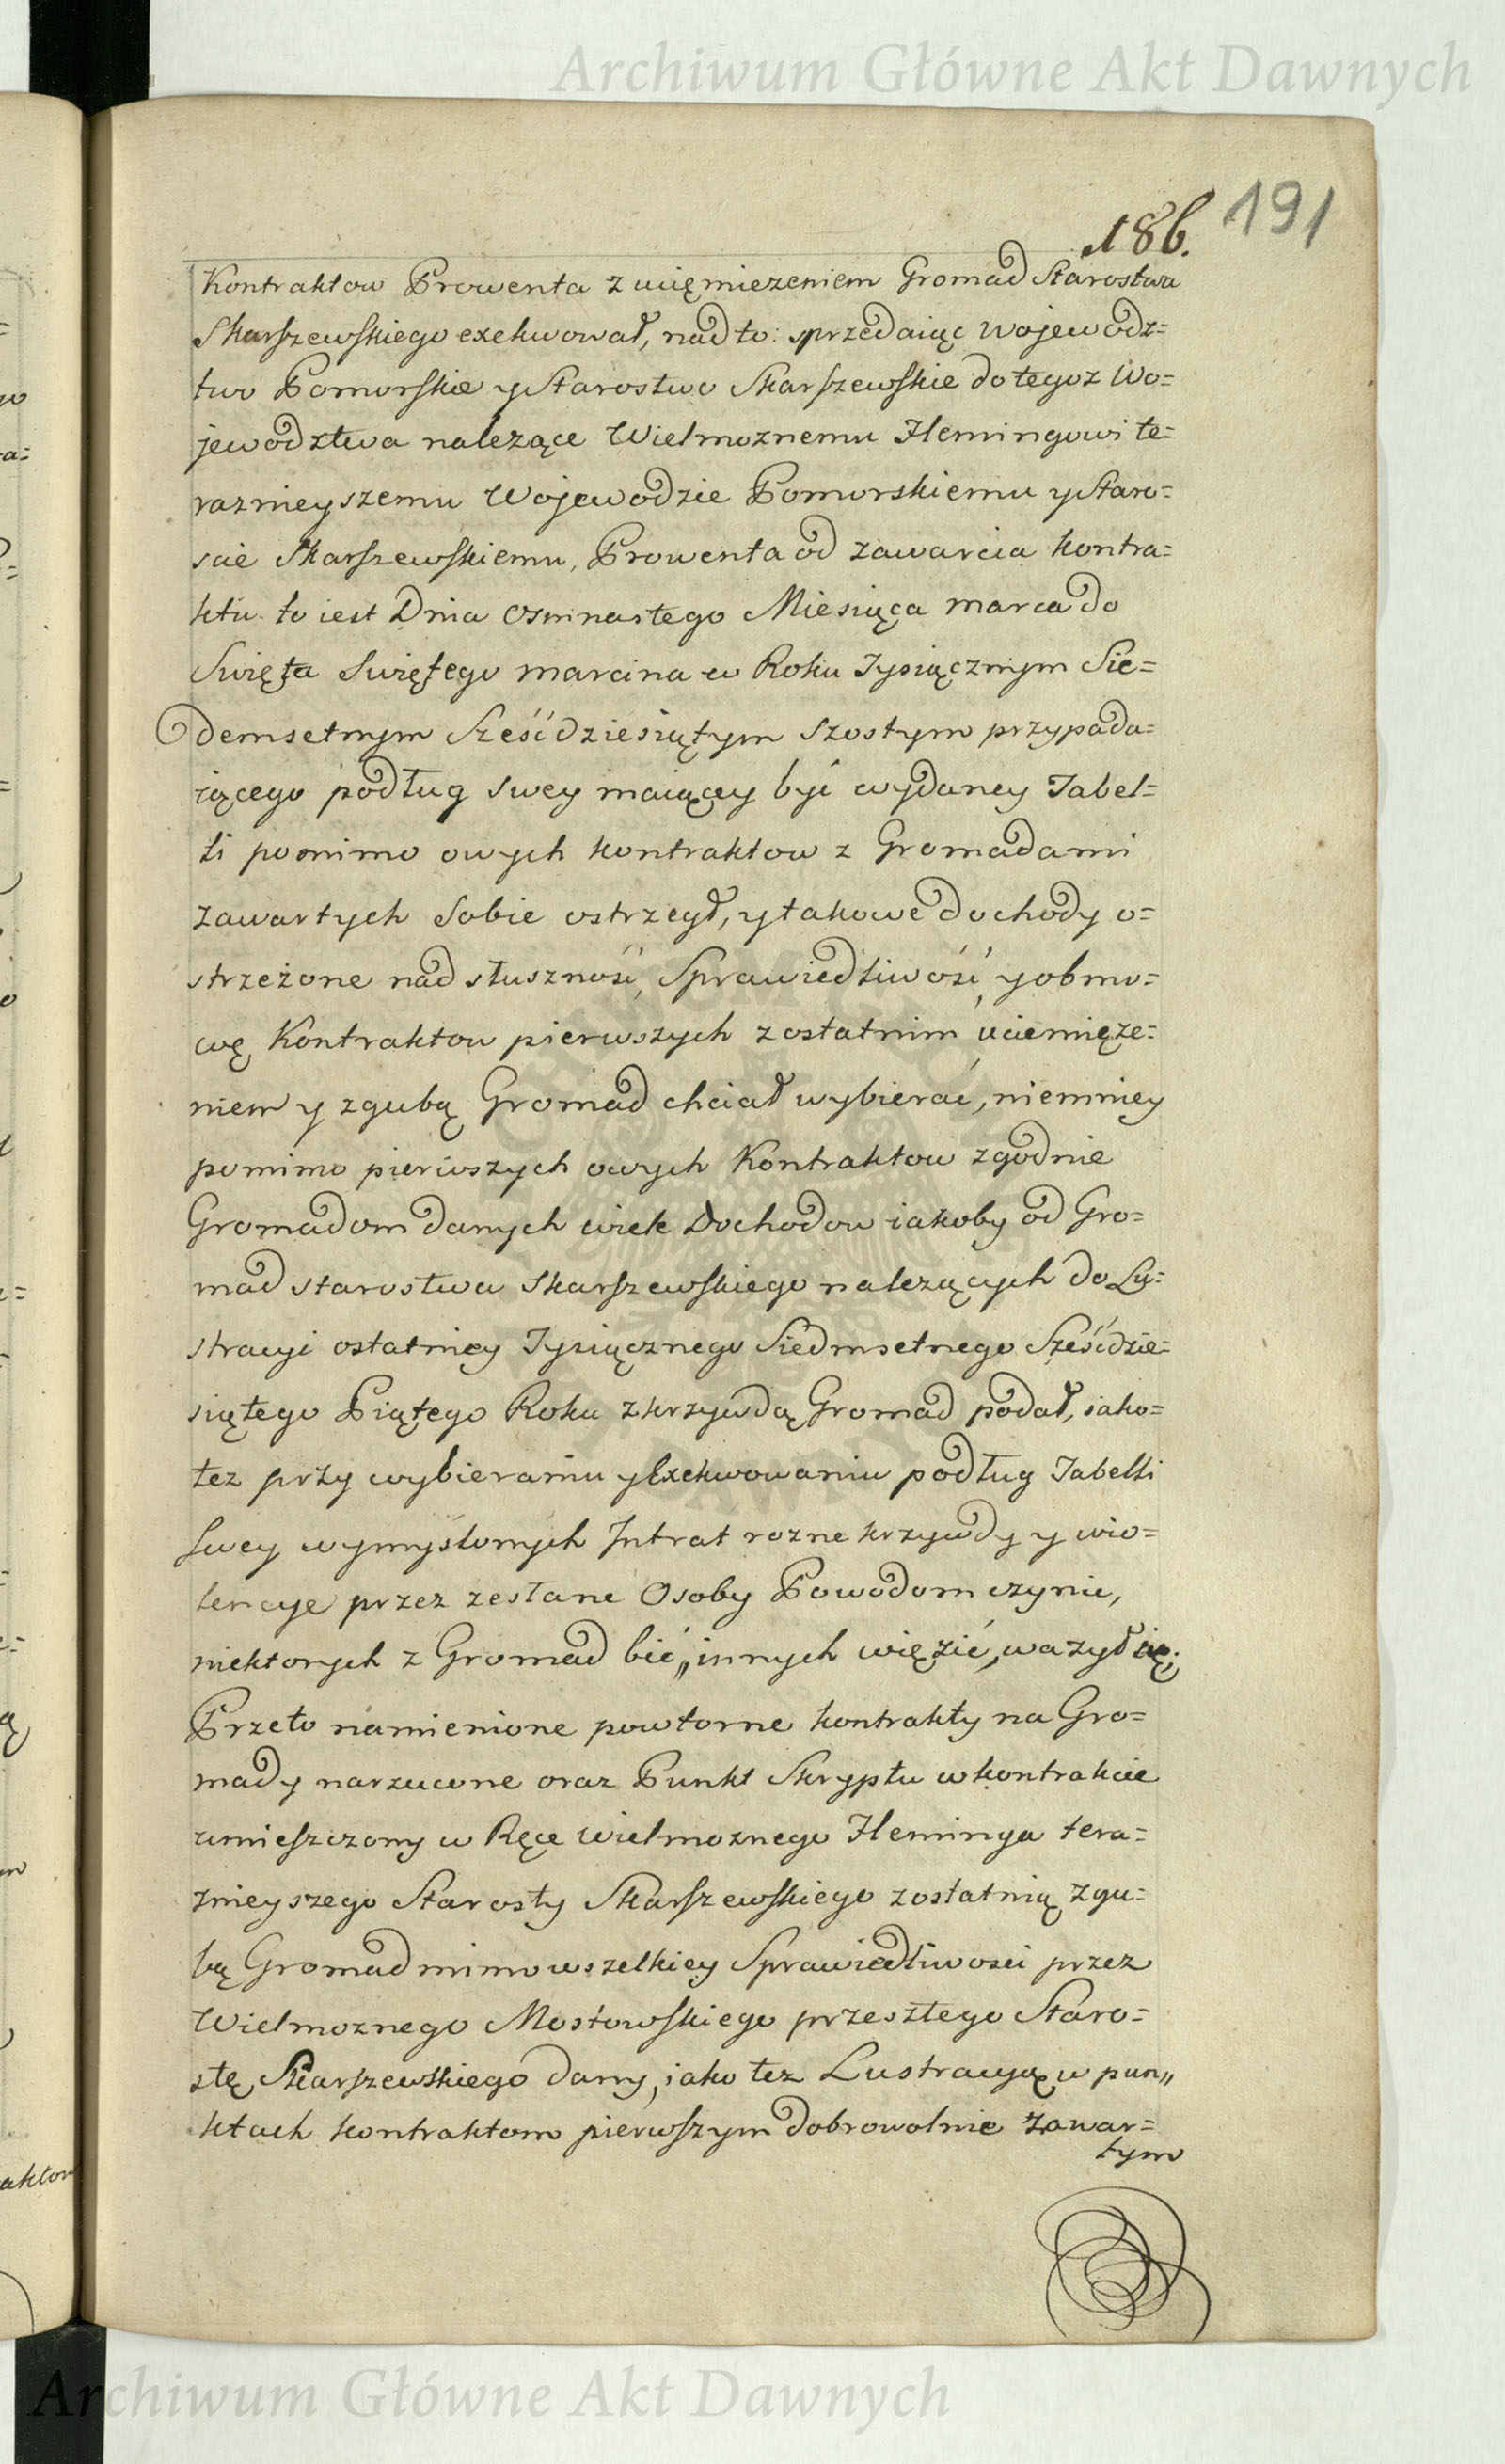 Archiwum Główne Akt Dawnych
186. 191
Kontraktow Prowenta z uciemiezeniem Gromad Starostwa
Skarszewskiego exekwował, nad to: sprzedaiąc Wojewodz=
two Pomorskie y Starostwo Skarszewskie do tegoz Wo=
jewodztwa nalezące Wielmoznemu Flemingowi te=
raznieyszemu Wojewodzie Pomorskiemu y Staro=
scie Skarszewskiemu, Prowenta od zawarcia kontra=
ktu to iest Dnia Osmnastego Miesiąca marca do
Swięta Swiętego marcina w Roku Tysiącznym Sie=
demsetnym Sześćdziesiątym Szostym przypada=
iącego podług swey maiącey być wydaney Tabel=
li pomimo owych kontraktow z Gromadami
zawartych Sobie ostrzegł, y takowe dochody o=
strzeżone nad słuszność, Sprawiedliwość, y obmo=
wę Kontraktow pierwszych z ostatnim uciemięże=
niem y zgubą Gromad chciał wybierać, niemniey
pomimo pierwszych owych Kontraktow zgodnie
Gromadom danych wiele Dochodow iakoby od Gro=
mad starostwa Skarszewskiego nalezących do Lu=
stracyi ostatniey Tysiącznego Siedmsetnego Sześćdzie=
siątego Piątego Roku z krzywdą Gromad podał, iako=
tez przy wybieraniu y Exekwowaniu podług Tabelli
Swey wymyslonych Intrat rozne krzywdy y wio=
lencye przez zesłane Osoby Powodom czynic,
niektorych z Gromad bić, innych więzić, wazył się;
Przeto namienione powtorne kontrakty na Gro=
mady narzucone oraz Punkt Skryptu w kontrakcie
umieszczony w Ręce Wielmoznego Fleminga tera=
znieyszego Starosty Skarszewskiego z ostatnią zgu=
bą Gromad mimo wszelkiey Sprawiedliwosci przez
Wielmoznego Mostowskiego przeszłego Staro=
stę Skarszewskiego dany, iako tez Lustracyą w pun„
ktach kontraktom pierwszym dobrowolnie zawar=
tym
Archiwum Główne Akt Dawnych